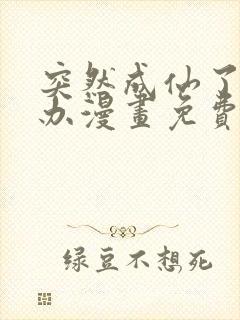 突然成仙了
办漫畫免費
绿豆不想死